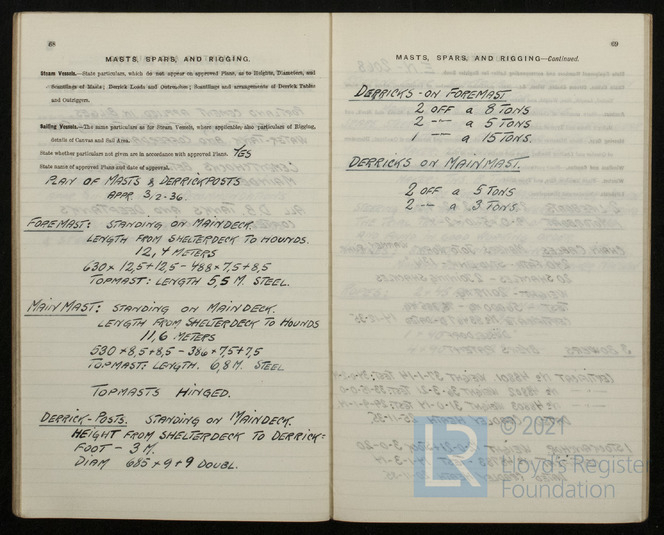 68
MASTS, SPARS, AND RIGGING.
Steam Vessels.—State particulars, which do not appear on approved Plans, as to Heights, Diameters, and
Scantlings of Masts; Derrick Loads and Outreaches; Scantlings and arrangements of Derrick Tables
and Outriggers.
Sailing Vessels.—The same particulars as for Steam Vessels, where applicable, also particulars of Rigging,
details of Canvas and Sail Area.
State whether particulars not given are in accordance with approved Plans. YES
State name of approved Plans and date of approval.
PLAN OF MASTS & DERRICKPOSTS
APPR. 3,2-36.
FOREMAST: STANDING ON MAINDECK.
LENGTH FROM SHELTERDECK TO HOUNDS.
12,4 METERS
630 x 12,5+12,5 - 488 x 7,5+8,5
TOPMAST: LENGTH 5,5 M. STEEL.
MAINMAST: STANDING ON MAINDECK.
LENGTH FROM SHELTERDECK TO HOUNDS
11,6 METERS
530 x 8,5+8,5 - 386 x 7,5+7,5
TOPMAST: LENGTH. 6,8 M. STEEL
TOPMASTS HINGED.
DERRICK-POSTS. STANDING ON MAINDECK.
HEIGHT FROM SHELTERDECK TO DERRICK=
FOOT - 3 M.
DIAM 685 x 9+9 DOUBL.
69
MASTS, SPARS, AND RIGGING—Continued.
DERRICKS-ON FOREMAST
2 OFF a 8 TONS
2 -"- a 5 TONS
1 -"- a 15 TONS.
DERRICKS ON MAINMAST.
2 OFF a 5 TONS
2 -"- a 3 TONS.
© 2021
LR
Lloyd's Register
Foundation